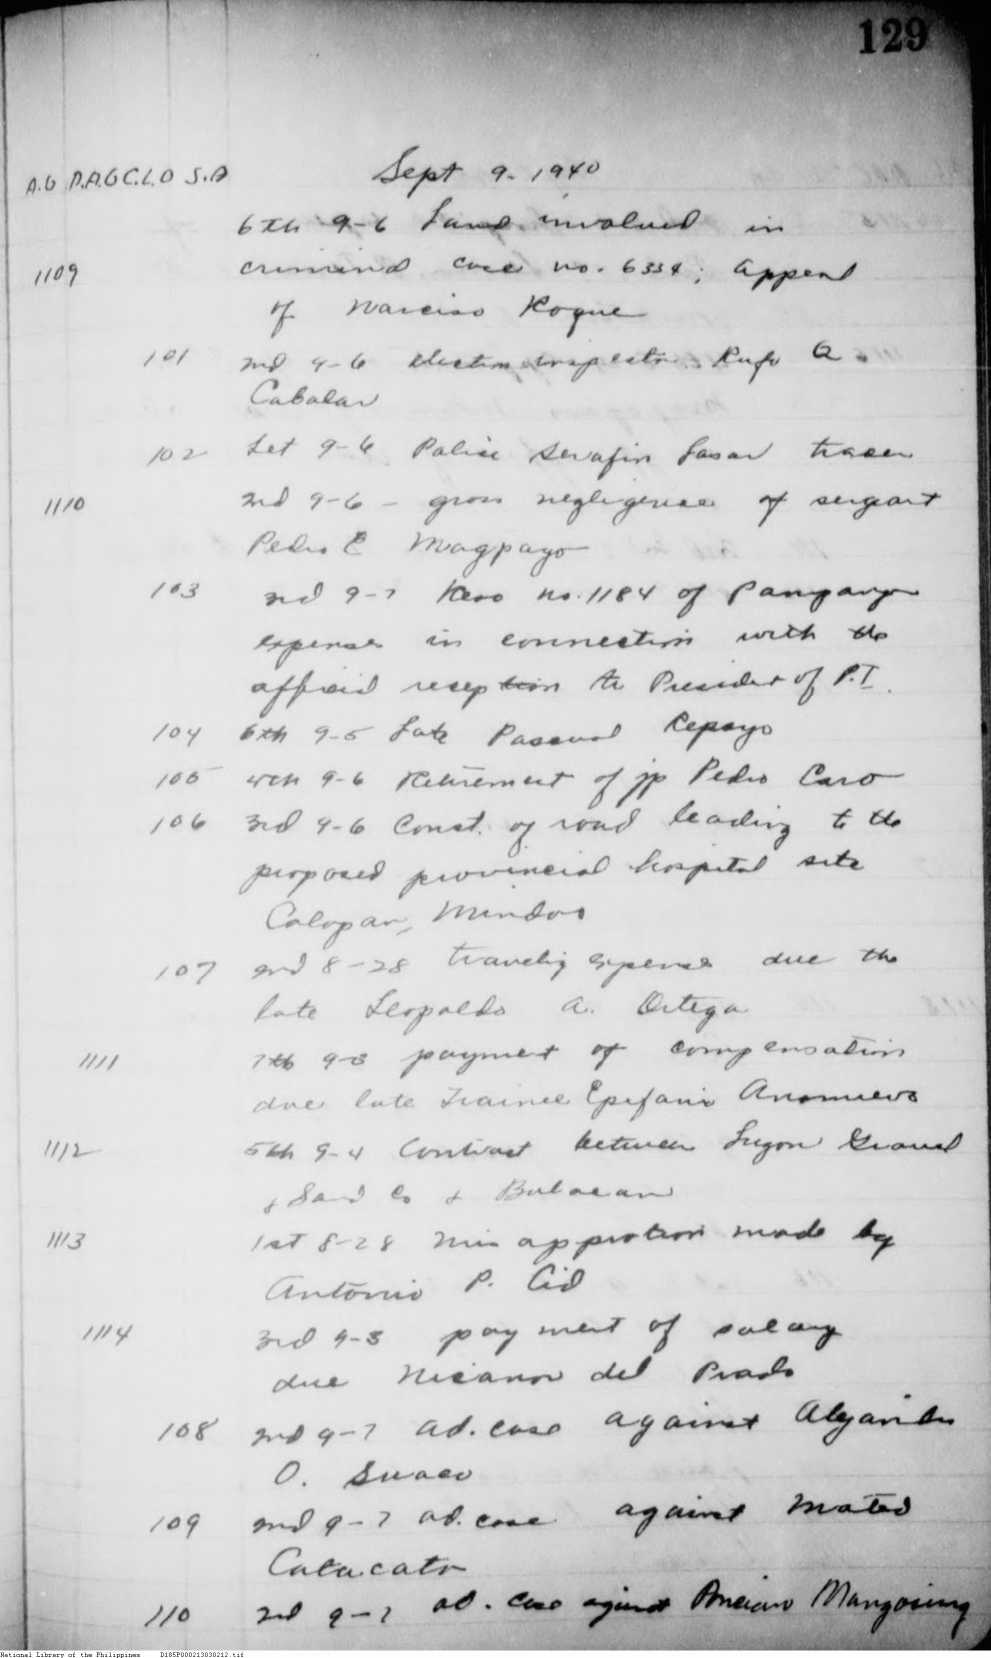 129
A.G D.A.G C.L.O S.A Sept 9. 1940
6th 9-6 Land involved in
1109 criminal case no. 6334; Appeal
of Narciso Roque
101 2nd 9-6 election inspector Rufo A.
Cabalar
102 1st 9-6 Police Serafin tracer
1110 2nd 9-6 - gross negligence of sergeant
Pedro E Magpayo
103 2nd 9-7 Reso no. 1184 of
expenses in connection with the
official reception to President of P.I.
104 6th 9-5 Late Pascual Repayo
105 4th 9-6 Retirement of jp Pedro Caro
106 3rd 9-6 Const. of road leading to the
proposed provincial hospital site
Calapan, Mindoro
107 2nd 8-28 traveling expenses due the
late Leopoldo A. Ortega
1111 7th 9-3 payment of compensation
due late Trainee Epifanio
1112 5th 9-4 Contract between Luzon Gravel
& Sand Co & Bulacan
1113 1st 8-28 made by
Antonio P. Cid
1114 3rd 9-3 payment of salary
due Nicanor del Prado
108 2nd 9-7 ad. case against
O.
109 2nd 9-7 ad. case against Mateo
Catacato
110 2nd 9-7 ad. case against
National Library of the Philippines D185P000213030212.tif